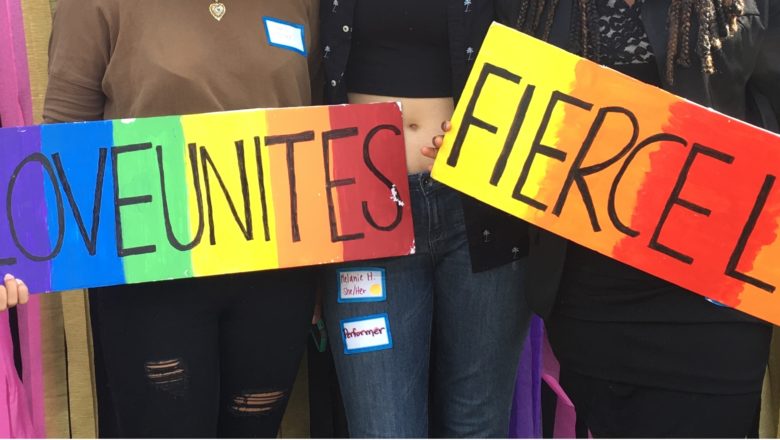 LOVE UNITES
FIERCEL
Melanie H.
She/Her
Performer